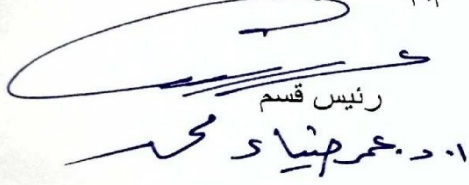 رئيس قسم
ا.د. عمر ضياء محمد